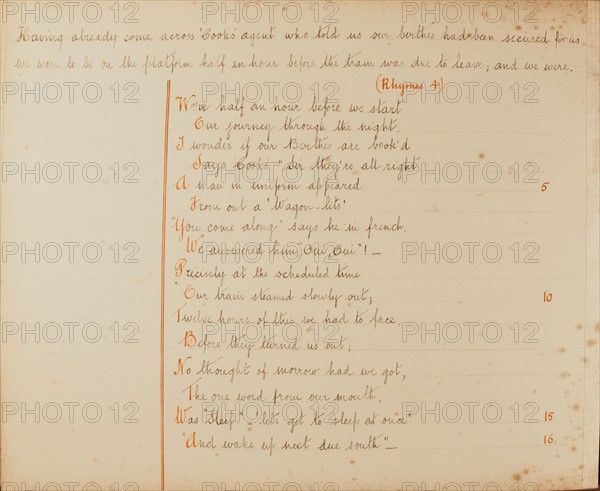 Having already come across Cook's agent who told us our berthes had been secured for us
we were to be on the platform half an hour before the train was due to leave; and we were.
(Rhymes 4)
We've half an hour before we start
Our journey through the night.
I wonder if our Berthes are book'd
Says Cooks "Sir they're all right
A man in uniform appeared 5
From out a 'Wagon-lits'
"You come along" says he in french.
We answered him "Oui, Oui"! —
Precisely at the scheduled time
Our train steamed slowly out; 10
Twelve hours of this we had to face.
Before they turned us out;
No thought of morrow had we got,
The one word from our mouth,
Was "Sleep" – "let's get to sleep at once" 15
"And wake up next due south" — 16